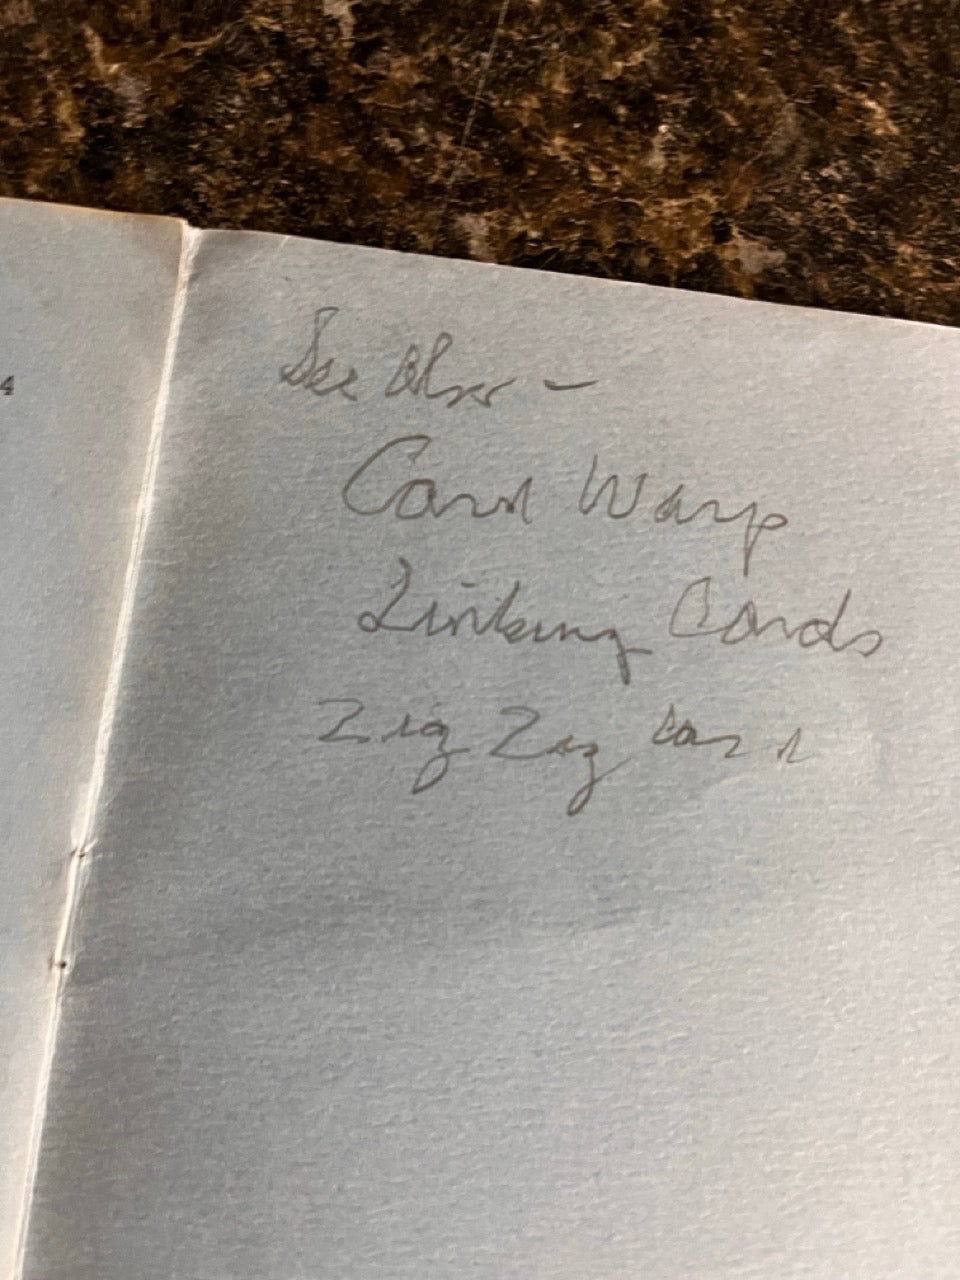 4
See Also –
Card Warp
Linking Cards
Zig Zag Card